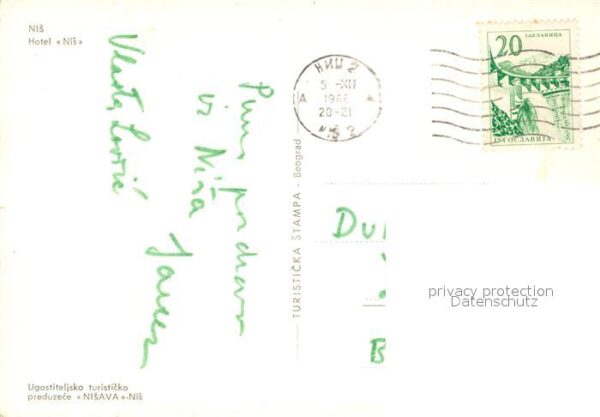 NIŠ
Hotel «Niš»
Puno pozdrava
iz Niša
Vlasta Lovrić
Ugostiteljsko turističko
preduzeće «NIŠAVA»-Niš
TURISTIČKA ŠTAMPA - Beograd
НИШ 2
5-XII
1966
20-21
NIŠ 2
A A
20
ЈАБЛАНИЦА
ЈУГОСЛАВИЈА
Du
B
privacy protection
Datenschutz